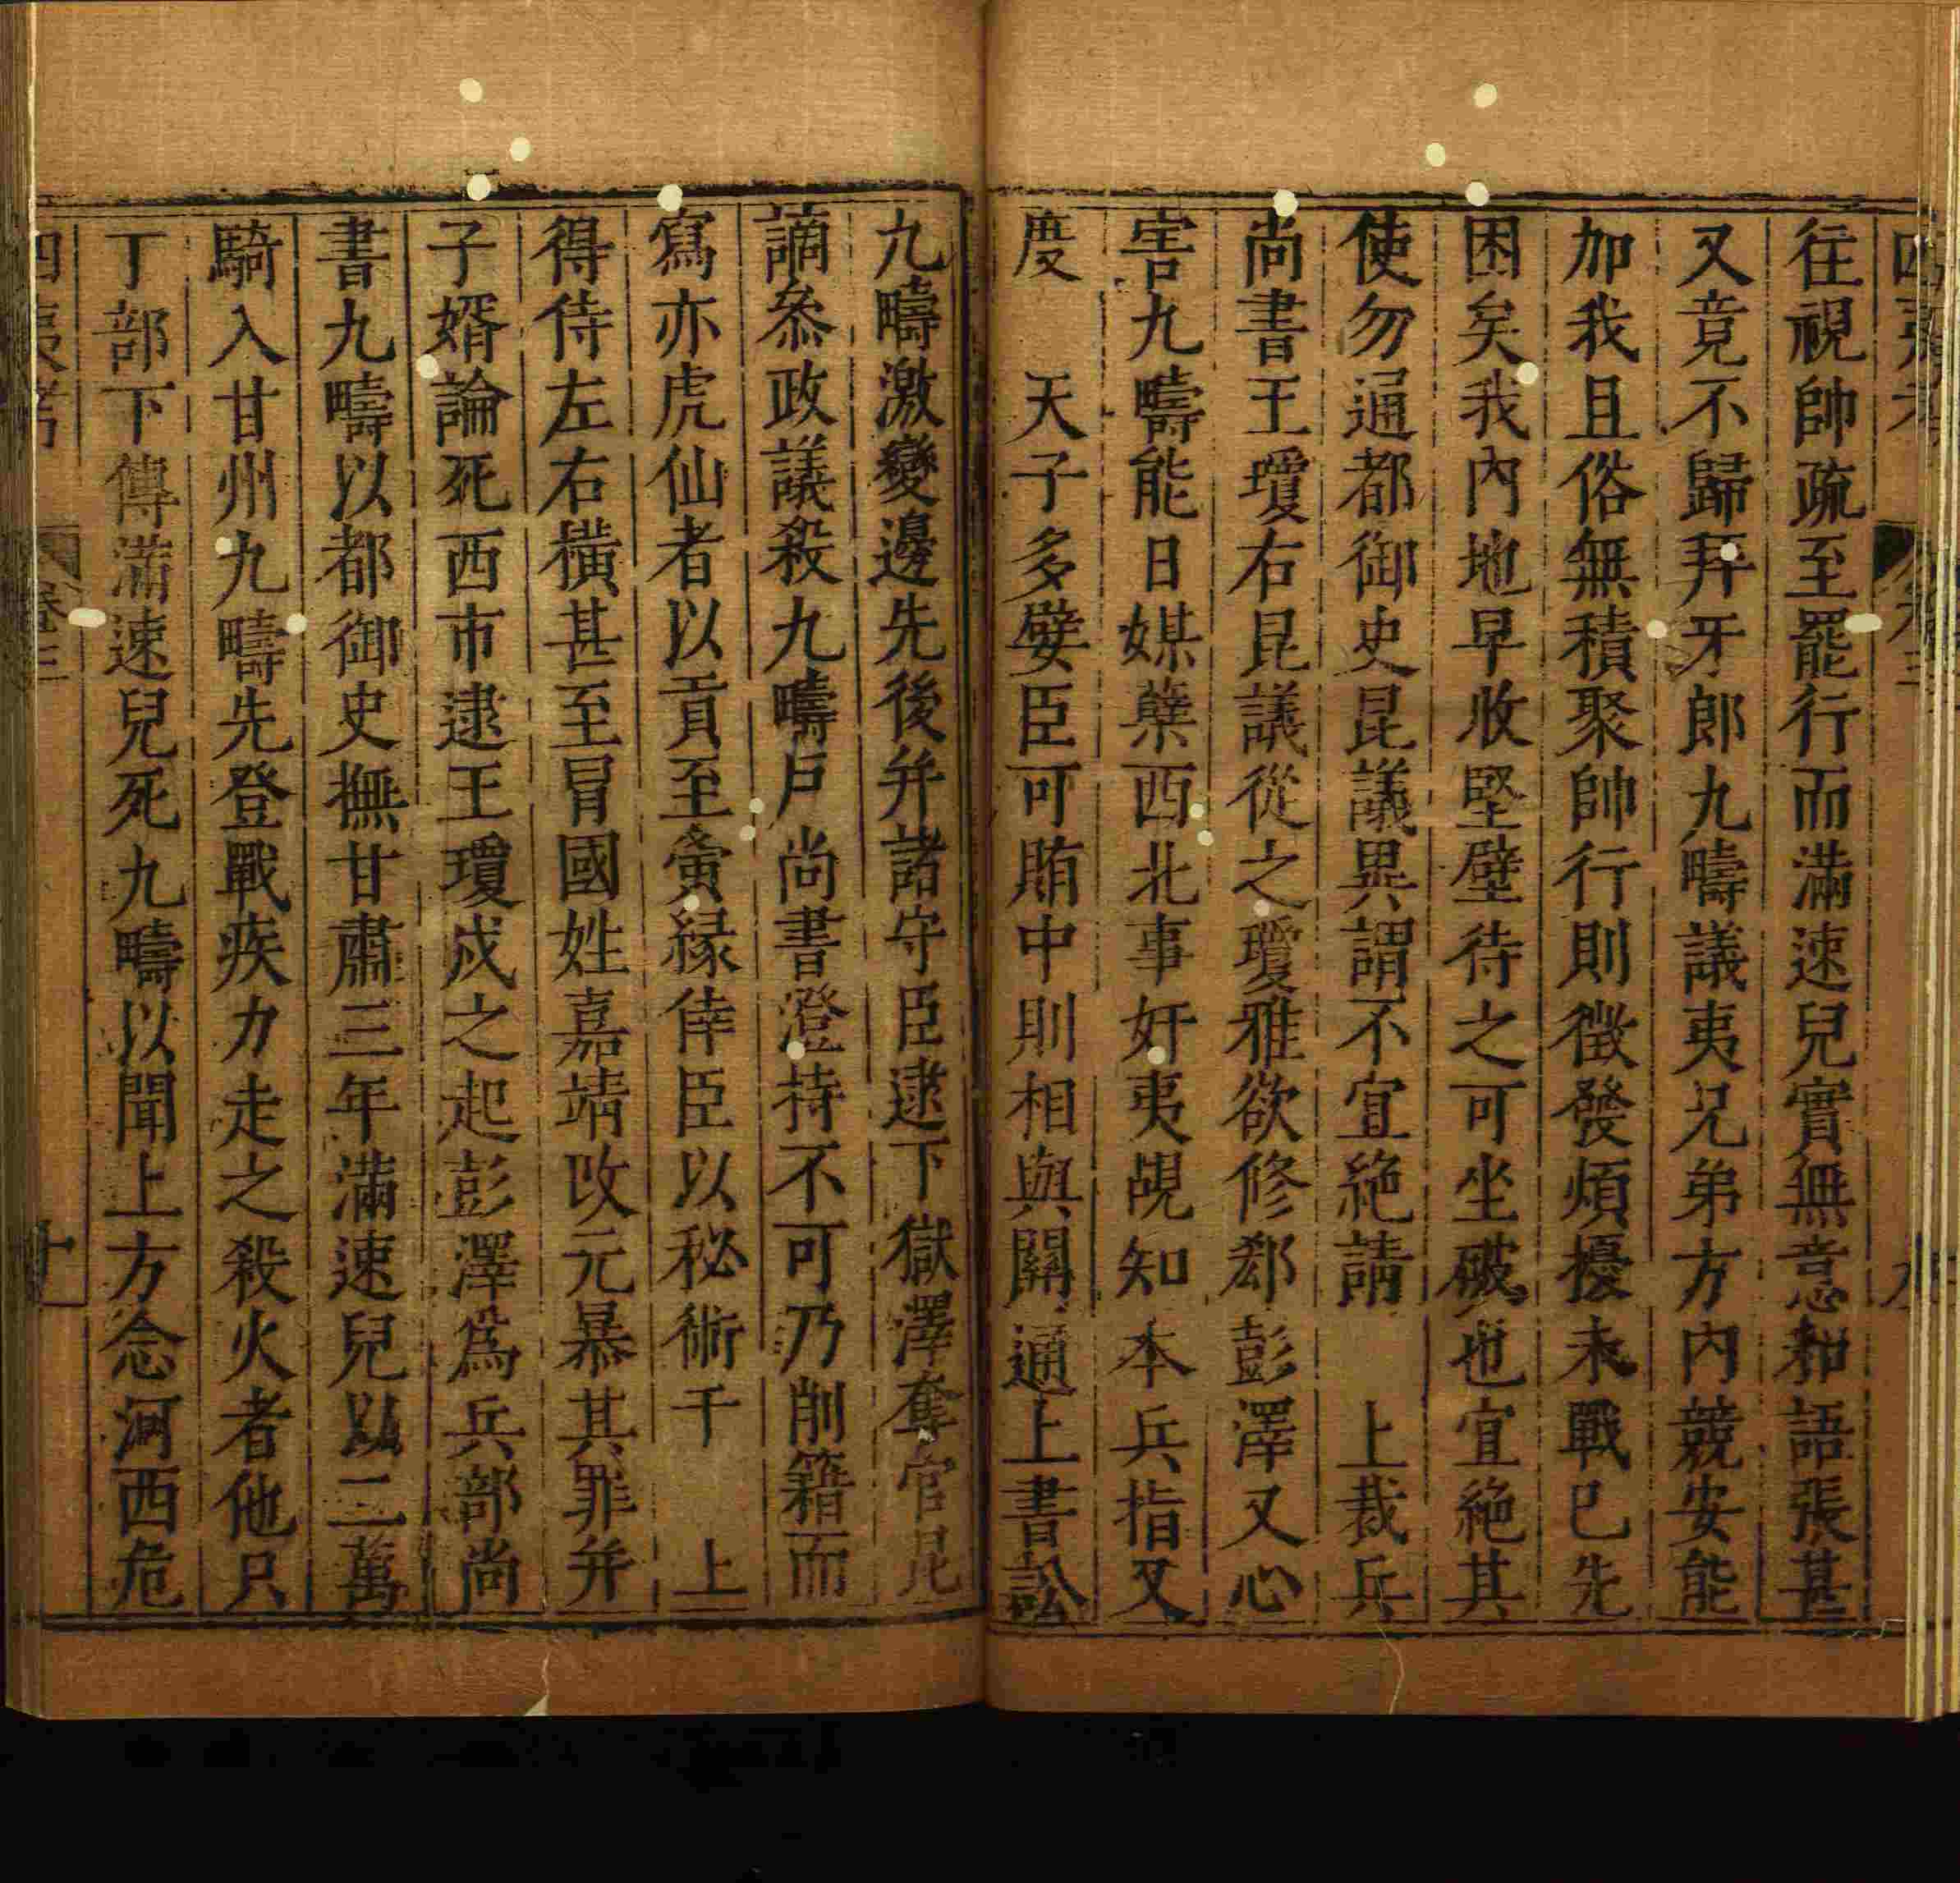 往視帥疏至罷行而滿速兒實無意耕語張甚
又竟不歸拜牙郎九疇議夷兄弟方內競安能
加我且俗無積聚帥行則徵發煩擾未戰已先
困矣我內地早收堅壁待之可坐破也宜絶其
使勿通都御史昆議異謂不宜絶請　上裁兵
尚書王瓊右昆議從之瓊雅欲修郄彭澤又心
害九疇能日媒糵西北事奸夷覘知本兵指又
度　天子多嬖臣可賄中則相與關通上書訟
九疇激變邊先後并諸守臣逮下獄澤奪官昆
謫叅政議殺九疇戶尚書澄持不可乃削籍而
寫亦虎仙者以貢至夤緣倖臣以秘術干　上
得侍左右横甚至冒國姓嘉靖改元暴其罪并
子婿論死西市逮王瓊戍之起彭澤爲兵部尚
書九疇以都御史撫甘肅三年滿速兒以二萬
騎入甘州九疇先登戰疾力走之殺火者他只
丁部下傳滿速兒死九疇以聞上方念河西危
四夷考　卷三　十